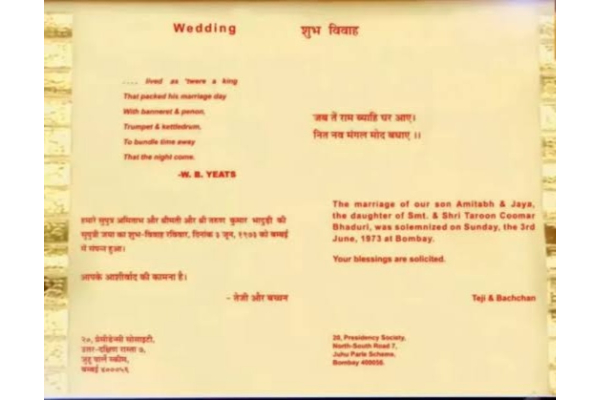 Wedding
शुभ विवाह
.... lived as 'twere a king
That packed his marriage day
With banneret & penon,
Trumpet & kettledrum,
To bundle time away
That the night come.
-W. B. YEATS
जब तें राम ब्याहि घर आए।
नित नव मंगल मोद बधाए ।।
हमारे सुपुत्र अमिताभ और श्रीमती और श्री तरुण कुमार भादुड़ी की
सुपुत्री जया का शुभ-विवाह रविवार, दिनांक ३ जून, १९७३ को बम्बई
में संपन्न हुआ।
आपके आशीर्वाद की कामना है।
- तेजी और बच्चन
The marriage of our son Amitabh & Jaya,
the daughter of Smt. & Shri Taroon Coomar
Bhaduri, was solemnized on Sunday, the 3rd
June, 1973 at Bombay.
Your blessings are solicited.
Teji & Bachchan
२०, प्रेसीडेन्सी सोसाइटी,
उत्तर-दक्षिण रास्ता ७,
जुहू पार्ले स्कीम,
बम्बई ४०००५६
20, Presidency Society,
North-South Road 7,
Juhu Parle Scheme,
Bombay 400056.